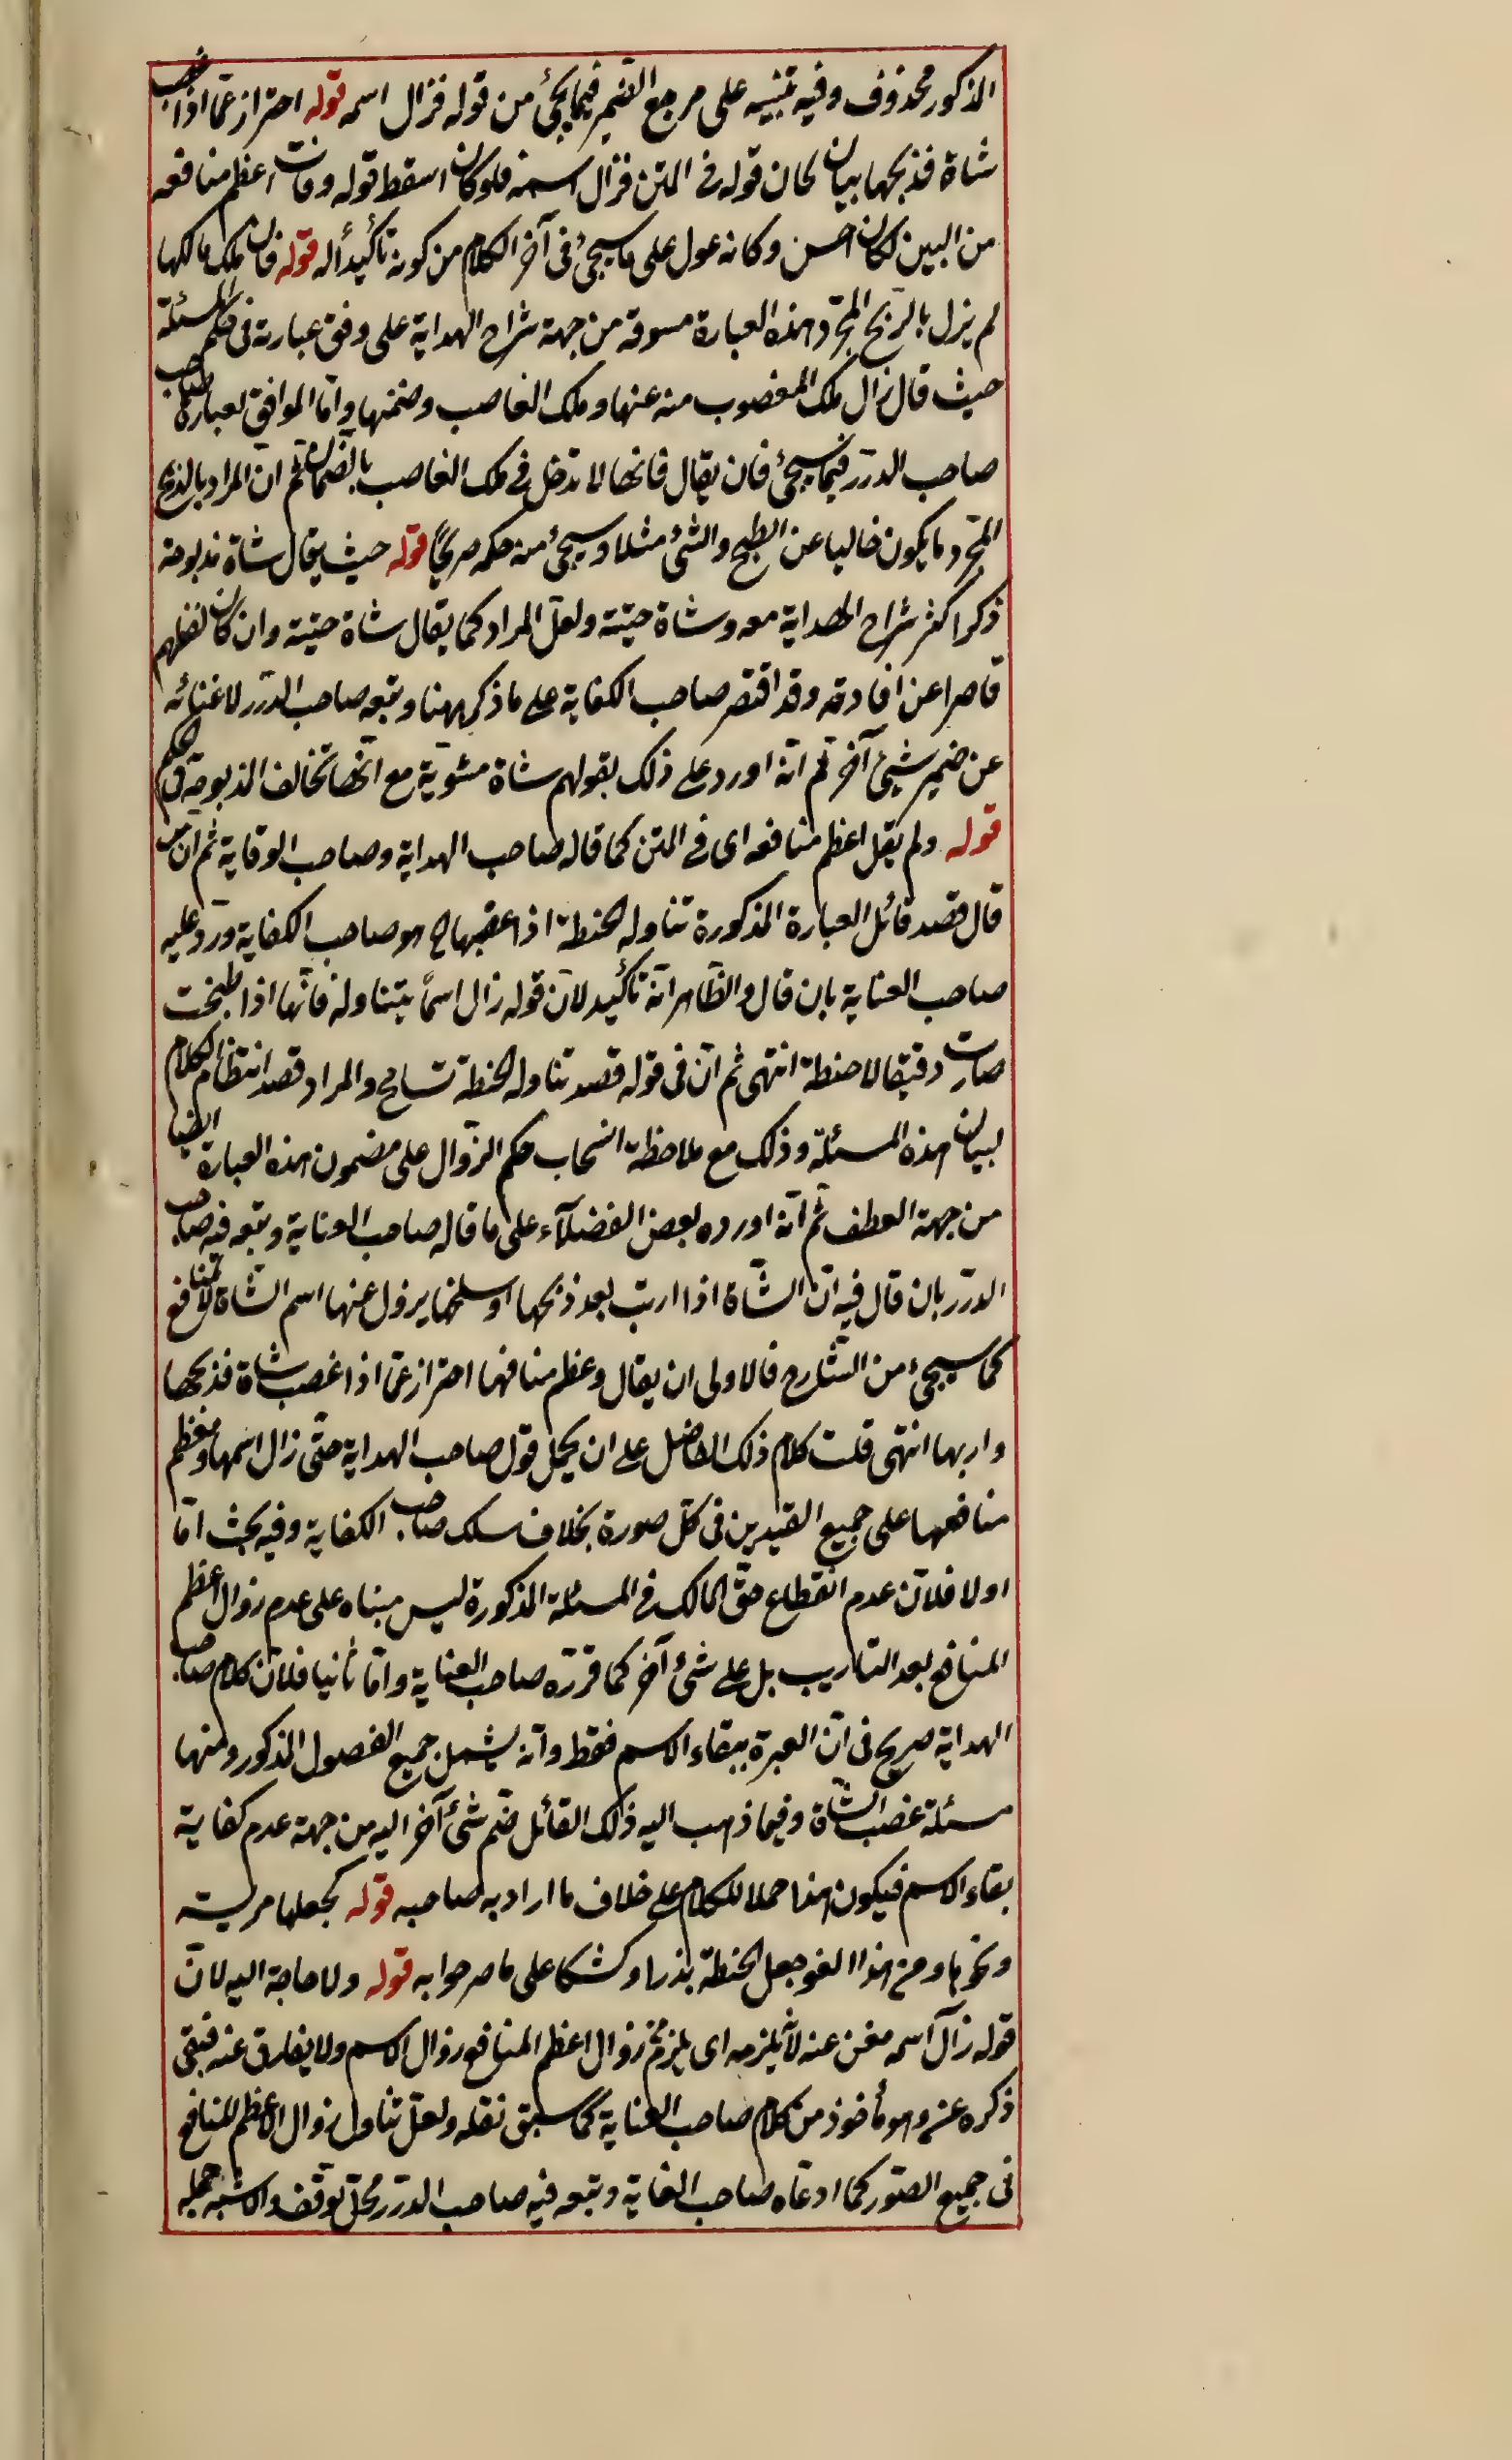 المذكور محذوف وفيه تنبيه على مرجع الضمير فيما يجئ من قوله فزال اسمه قوله احتراز عما اذا غصب
شاة فذبحها بيان لحان قوله فى المتن فزال اسمه فلو كان اسقط قوله وفات اعظم منافعه
من البين لكان احسن وكانه عول على ما سيجئ فى آخر الكلام من كونه تأكيدا له قوله فان ملك مالكها
لم يزل بالذبح المجرد هذه العبارة مسوقة من جهة شراح الهداية على وفق عبارته فى حكم المسئلة
حيث قال زال ملك المغصوب منه عنها وملك الغاصب وضمنها وامّا الموافق لعبارة
صاحب الدرر فيما سيجئ فان يقال فانها لا تدخل فى ملك الغاصب بالضمان ثم ان المراد بالذبح
المجرد ما يكون خاليا عن الطبخ والشئ مثلا وسيجئ منه حكمه صريحا قوله حيث يقال شاة مذبوحة
ذكر اكثر شراح الهداية معه وشاة حيّة ولعل المراد كما يقال شاة حيّة وان كان لفظهم
قاصرا عن افادته وقد اقتصر صاحب الكفاية على ما ذكر ههنا وتبعه صاحب الدرر لاغنائه
عن ضمير شيئ آخر ثم انه اورد على ذلك بقولهم شاة مشويّة مع انّها تخالف المذبوحة فى الحكم
قوله ولم يقل اعظم منافعه اى فى المتن كما قاله صاحب الهداية وصاحب الوقاية ثم ان من
قال قصد قائل العبارة المذكورة تناوله لحنطة اذا غصبها الخ هو صاحب الكفاية وردّ عليه
صاحب العناية بان قال والظاهر انّه تأكيد لانّ قوله زال اسمها يتناوله فانّها اذا طحنت
صارت دقيقا لا حنطة انتهى ثم انّ فى قوله قصد تناوله لحنطة تسامح والمراد قصد انتظام الكلام
لبيان هذه المسئلة وذلك مع ملاحظة انسحاب حكم الزوال على مضمون هذه العبارة ايضا
من جهة العطف ثم انّه اورده بعض الفضلاء على ما قاله صاحب العناية وتبعه فيه صاحب
الدرر بان قال فيه انّ الشّاة اذا اربت بعد ذبحها او سلخها يزول عنها اسم الشّاة لا المنافع
كما سيجئ من الشّارح فالاولى ان يقال وعظم منافها احتراز عمّا اذا غصب شاة فذبحها
واربها انتهى قلت كلام ذلك الفاضل على ان يحمل قول صاحب الهداية حتّى زال اسمها وعظم
منافعها على جميع القيدين فى كلّ صورة بخلاف مسلك صاحب الكفاية وفيه بحث امّا
اولا فلانّ عدم انقطاع حقّ المالك فى المسئلة المذكورة ليس مبناه على عدم زوال اعظم
المنافع بعد التاريب بل على شئ آخر كما قررّه صاحب العناية وامّا ثانيا فلانّ كلام صاحب
الهداية صريح فى انّ العبرة ببقاء الاسم فقط وانّه يشمل جميع الفصول المذكور ومنها
مسئلة غصب الشّاة وفيما ذهب اليه ذلك القائل ضمّ شئ آخر اليه من جهة عدم كفاية
بقاء الاسم فيكون هذا حملا للكلام على خلاف ما اراد به صاحبه قوله بجعلها هريسة
ونحوها ومن هذا النحو جعل لحنطة بذرا وكشكا على ما صرحوا به قوله ولا حاجة اليه لانّ
قوله زال اسمه مغن عنه لانّه يلزمه اى يلزم زوال اعظم المنافع زوال الاسم ولا يفارق عنه فبقى
ذكره عنه وهو مأخوذ من كلام صاحب العناية كما سبق نقله ولعلّ تناول زوال الاعظم المنافع
فى جميع الصّور كما ادعاه صاحب الغاية وتبعه فيه صاحب الدرر محلّ توقف والاشبه حمله